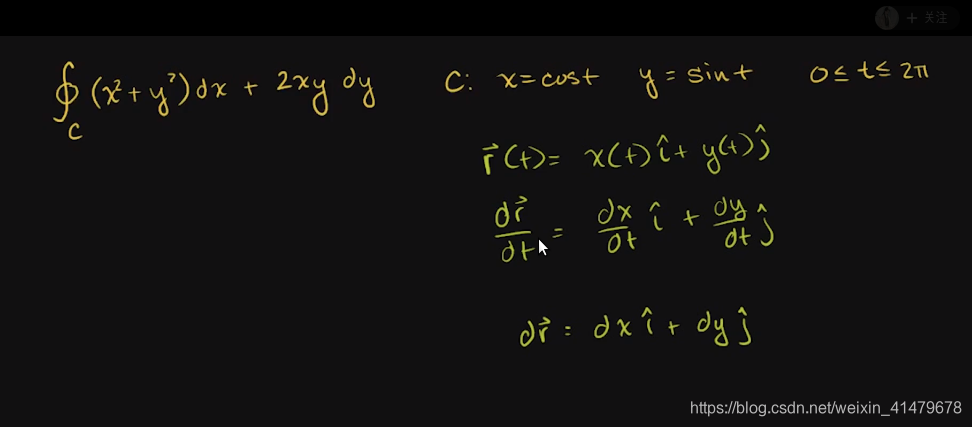 + 关注
∮_C (x²+y²)dx + 2xy dy   C: x=cost   y=sint   0≤t≤2π
r⃗(t)= x(t)î+ y(t)ĵ
dr⃗/dt = dx/dt î + dy/dt ĵ
dr⃗ = dx î + dy ĵ
https://blog.csdn.net/weixin_41479678